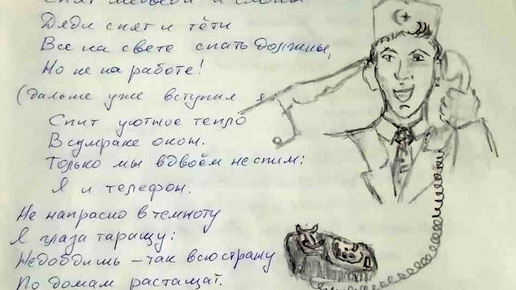 Спят медведи и слоны
Дяди спят и тёти
Все на свете спать должны,
Но не на работе!
(дальше уже вступил я
Спит уютное тепло
В сумраке окон.
Только мы вдвоём не спим:
Я и телефон.
Не напрасно в темноту
Я глаза таращу:
Недобдишь – так всю страну
По домам растащат.